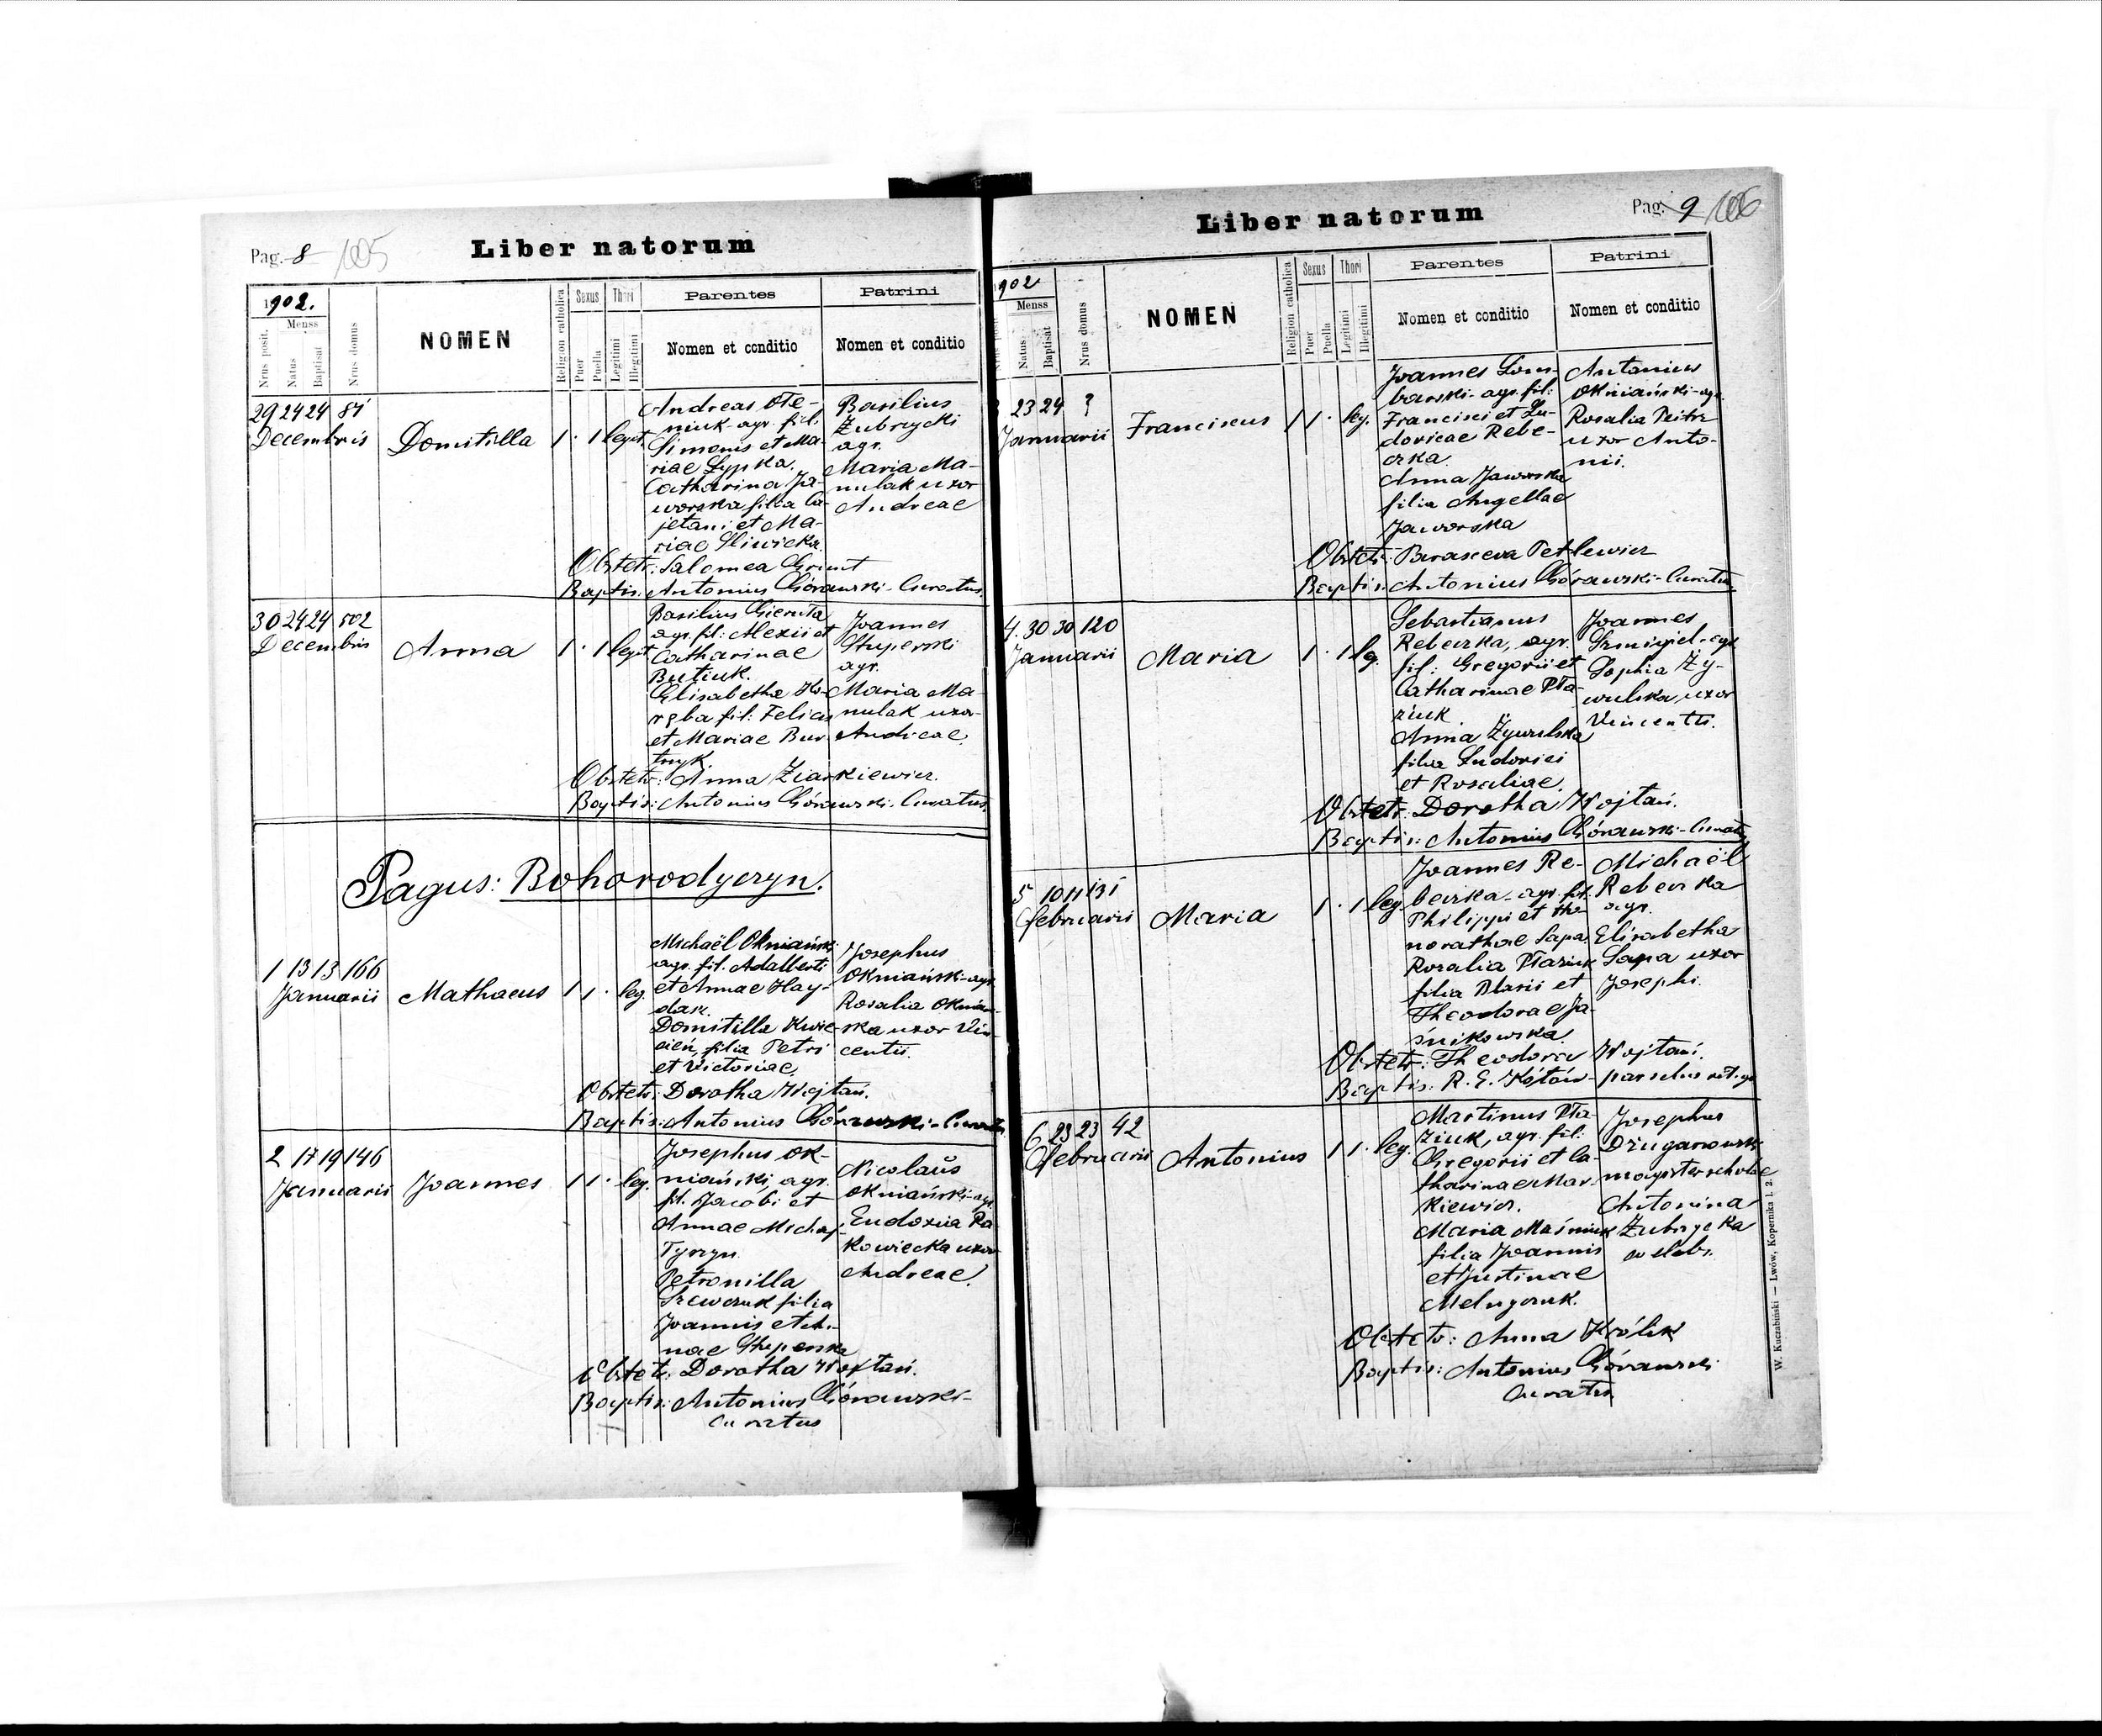 Pag. 8 105
Liber natorum
1902.
Menss
Nrus posit.
Natus
Baptisat
Nrus domus
NOMEN
Religion catholica
Sexus
Puer
Puella
Thori
Legitimi
Illegitimi
Parentes
Nomen et conditio
Patrini
Nomen et conditio
29 24 24 81
Decembris
Domitilla
1 . 1 legit.
Andreas Ole-
niuk - agr. fil:
Simonis et Ma-
riae Lypka.
Catharina Ja-
worska filia Ca-
jetani et Ma-
riae Śliwicka.
Basilius
Zubrzycki
agr.
Maria Ma-
nulak uxor
Andreae
Obstetr: Salomea Grunt
Baptis: Antonius Górawski - Curatus.
30 24 24 502
Decembris
Anna
1 . 1 legit.
Basilius Gieruta
agr. fil: Alexii et
Catharinae
Butiuk.
Elisabetha Ko-
ręba fil: Felicis
et Mariae Bur-
tnyk.
Joannes
Stuperski
agr.
Maria Ma-
nulak uxor
Andreae.
Obstetr: Anna Ziarkiewicz.
Baptis: Antonius Górawski. Curatus.
Pagus: Bohorodyczyn.
1 13 13 166
Januarii
Mathaeus
1 1 . leg.
Michaël Okniański
agr. fil. Adalberti
et Annae Hay-
dak.
Domitilla Kwie-
cień, filia Petri
et Victoriae.
Josephus
Okniański - agr.
Rosalia Oknian-
ska uxor Vin-
centii.
Obstetr: Dorotha Wojtań.
Baptis: Antonius Górawski - Curatus
2 17 19 146
Januarii
Joannes
1 1 . leg.
Josephus Ok-
niański, agr.
fil. Jacobi et
Annae Michaj-
Tyrzyn.
Petronilla
Szewczuk filia
Joannis et An-
nae Stuperska
Nicolaŭs
Okniański - agr.
Eudoxia Ra-
kowiecka uxor
Andreae.
Obstetr: Dorotha Wojtań.
Baptis: Antonius Górawski -
Curatus
Liber natorum
Pag. 9 106
1902
Menss
Natus
Baptisat
Nrus domus
NOMEN
Religion catholica
Sexus
Puer
Puella
Thori
Legitimi
Illegitimi
Parentes
Nomen et conditio
Patrini
Nomen et conditio
3 23 24 ?
Januarii
Franciscus
1 1 . leg.
Joannes Lom-
barski - agr. fil:
Francisci et Lu-
dovicae Rebe-
czka.
Anna Jaworska
filia Angellae
Jaworska
Antonius
Okniański - agr.
Rosalia Peitrz
uxor Anto-
nii.
Obstetr: Parasceva Petlewicz
Baptis: Antonius Górawski - Curatus
4. 30 30 120
Januarii
Maria
1 . 1 leg.
Sebastianus
Rebeczka, agr.
fil: Gregorii et
Catharinae Pta-
ziuk.
Anna Żywulska
filia Ludovici
et Rosaliae.
Joannes
Szmigiel - agr.
Sophia Ży-
wulska uxor
Vincentii.
Obstetr: Dorotha Wojtań.
Baptis: Antonius Górawski - Curatus
5 10 11 131
Februarii
Maria
1 . 1 leg.
Joannes Re-
beczka - agr. fil.
Philippi et Ho-
norathae Sapa.
Rosalia Ptaziuk
filia Blasii et
Theodorae Ja-
śnikowska.
Michaël
Rebeczka
agr.
Elisabetha
Sapa uxor
Josephi.
Obstetr: Theodora Wojtań.
Baptis: R. E. Kótów - parochus rit. gr.
6 23 23 42
Februarii
Antonius
1 1 . leg.
Martinus Pta-
ziuk, agr. fil:
Gregorii et Ca-
tharinae Mar-
kiewicz.
Maria Maśniuk
filia Joannis
et Justinae
Melnyczuk.
Josephus
Dżuganowski
magister scholae
Antonina
Zubrzycka
coelebs.
Obstetr: Anna Królik
Baptis: Antonius Górawski
Curatus
W. Kuczabiński — Lwów, Kopernika l. 2.